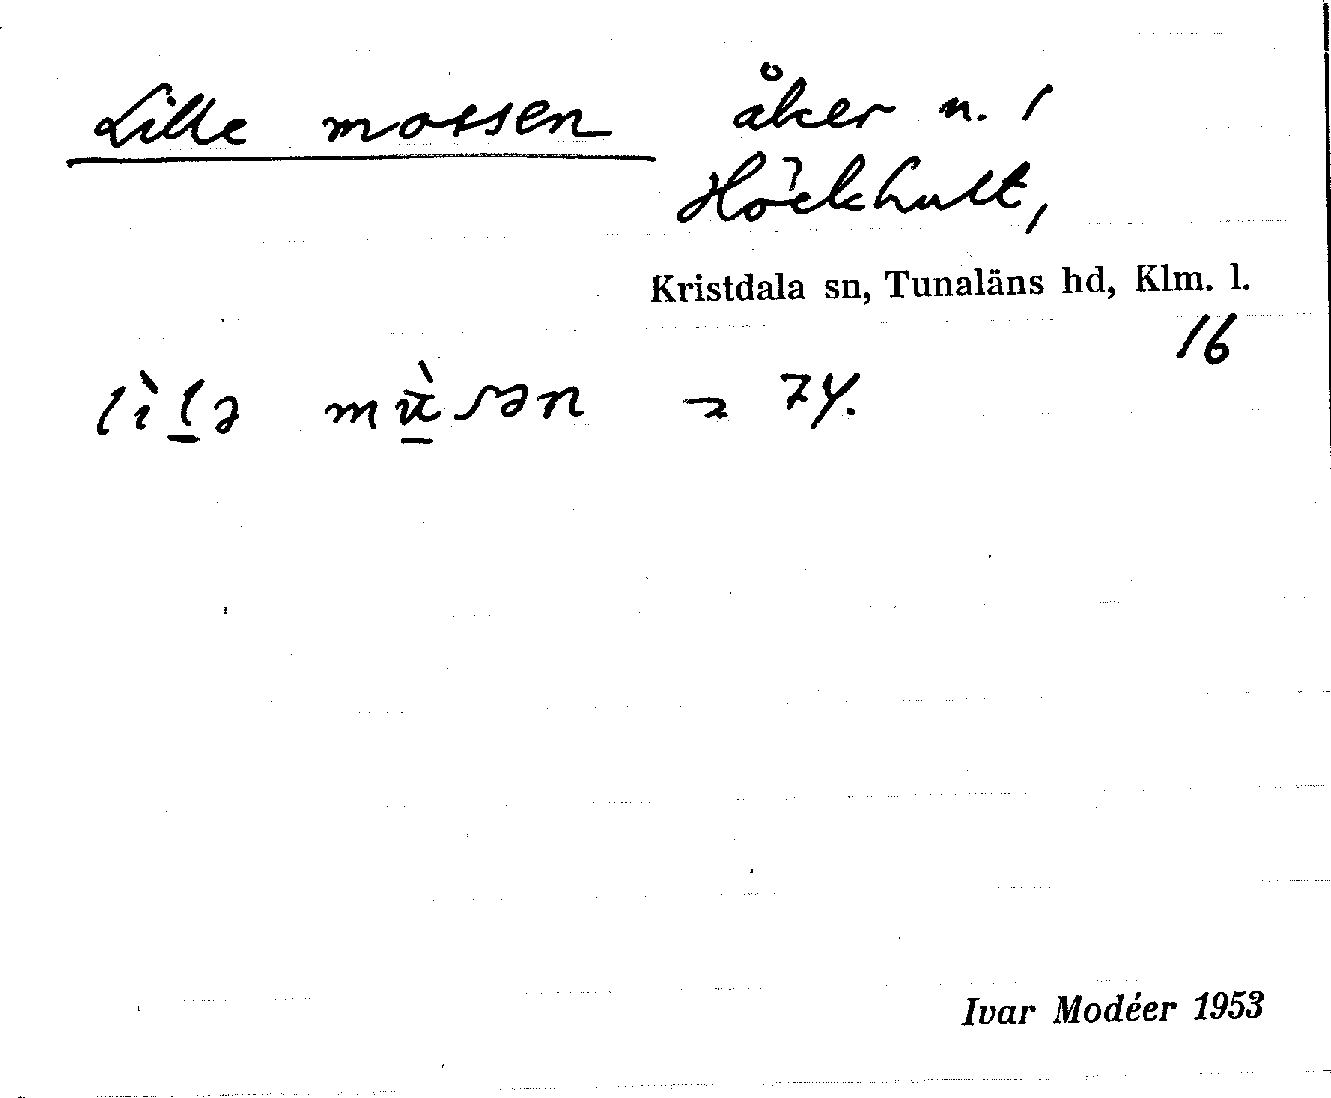 Lille mossen åker n. 1
Höckhult,
Kristdala sn, Tunaläns hd, Klm. l.
16
lìlə mùsən 74.
Ivar Modéer 1953